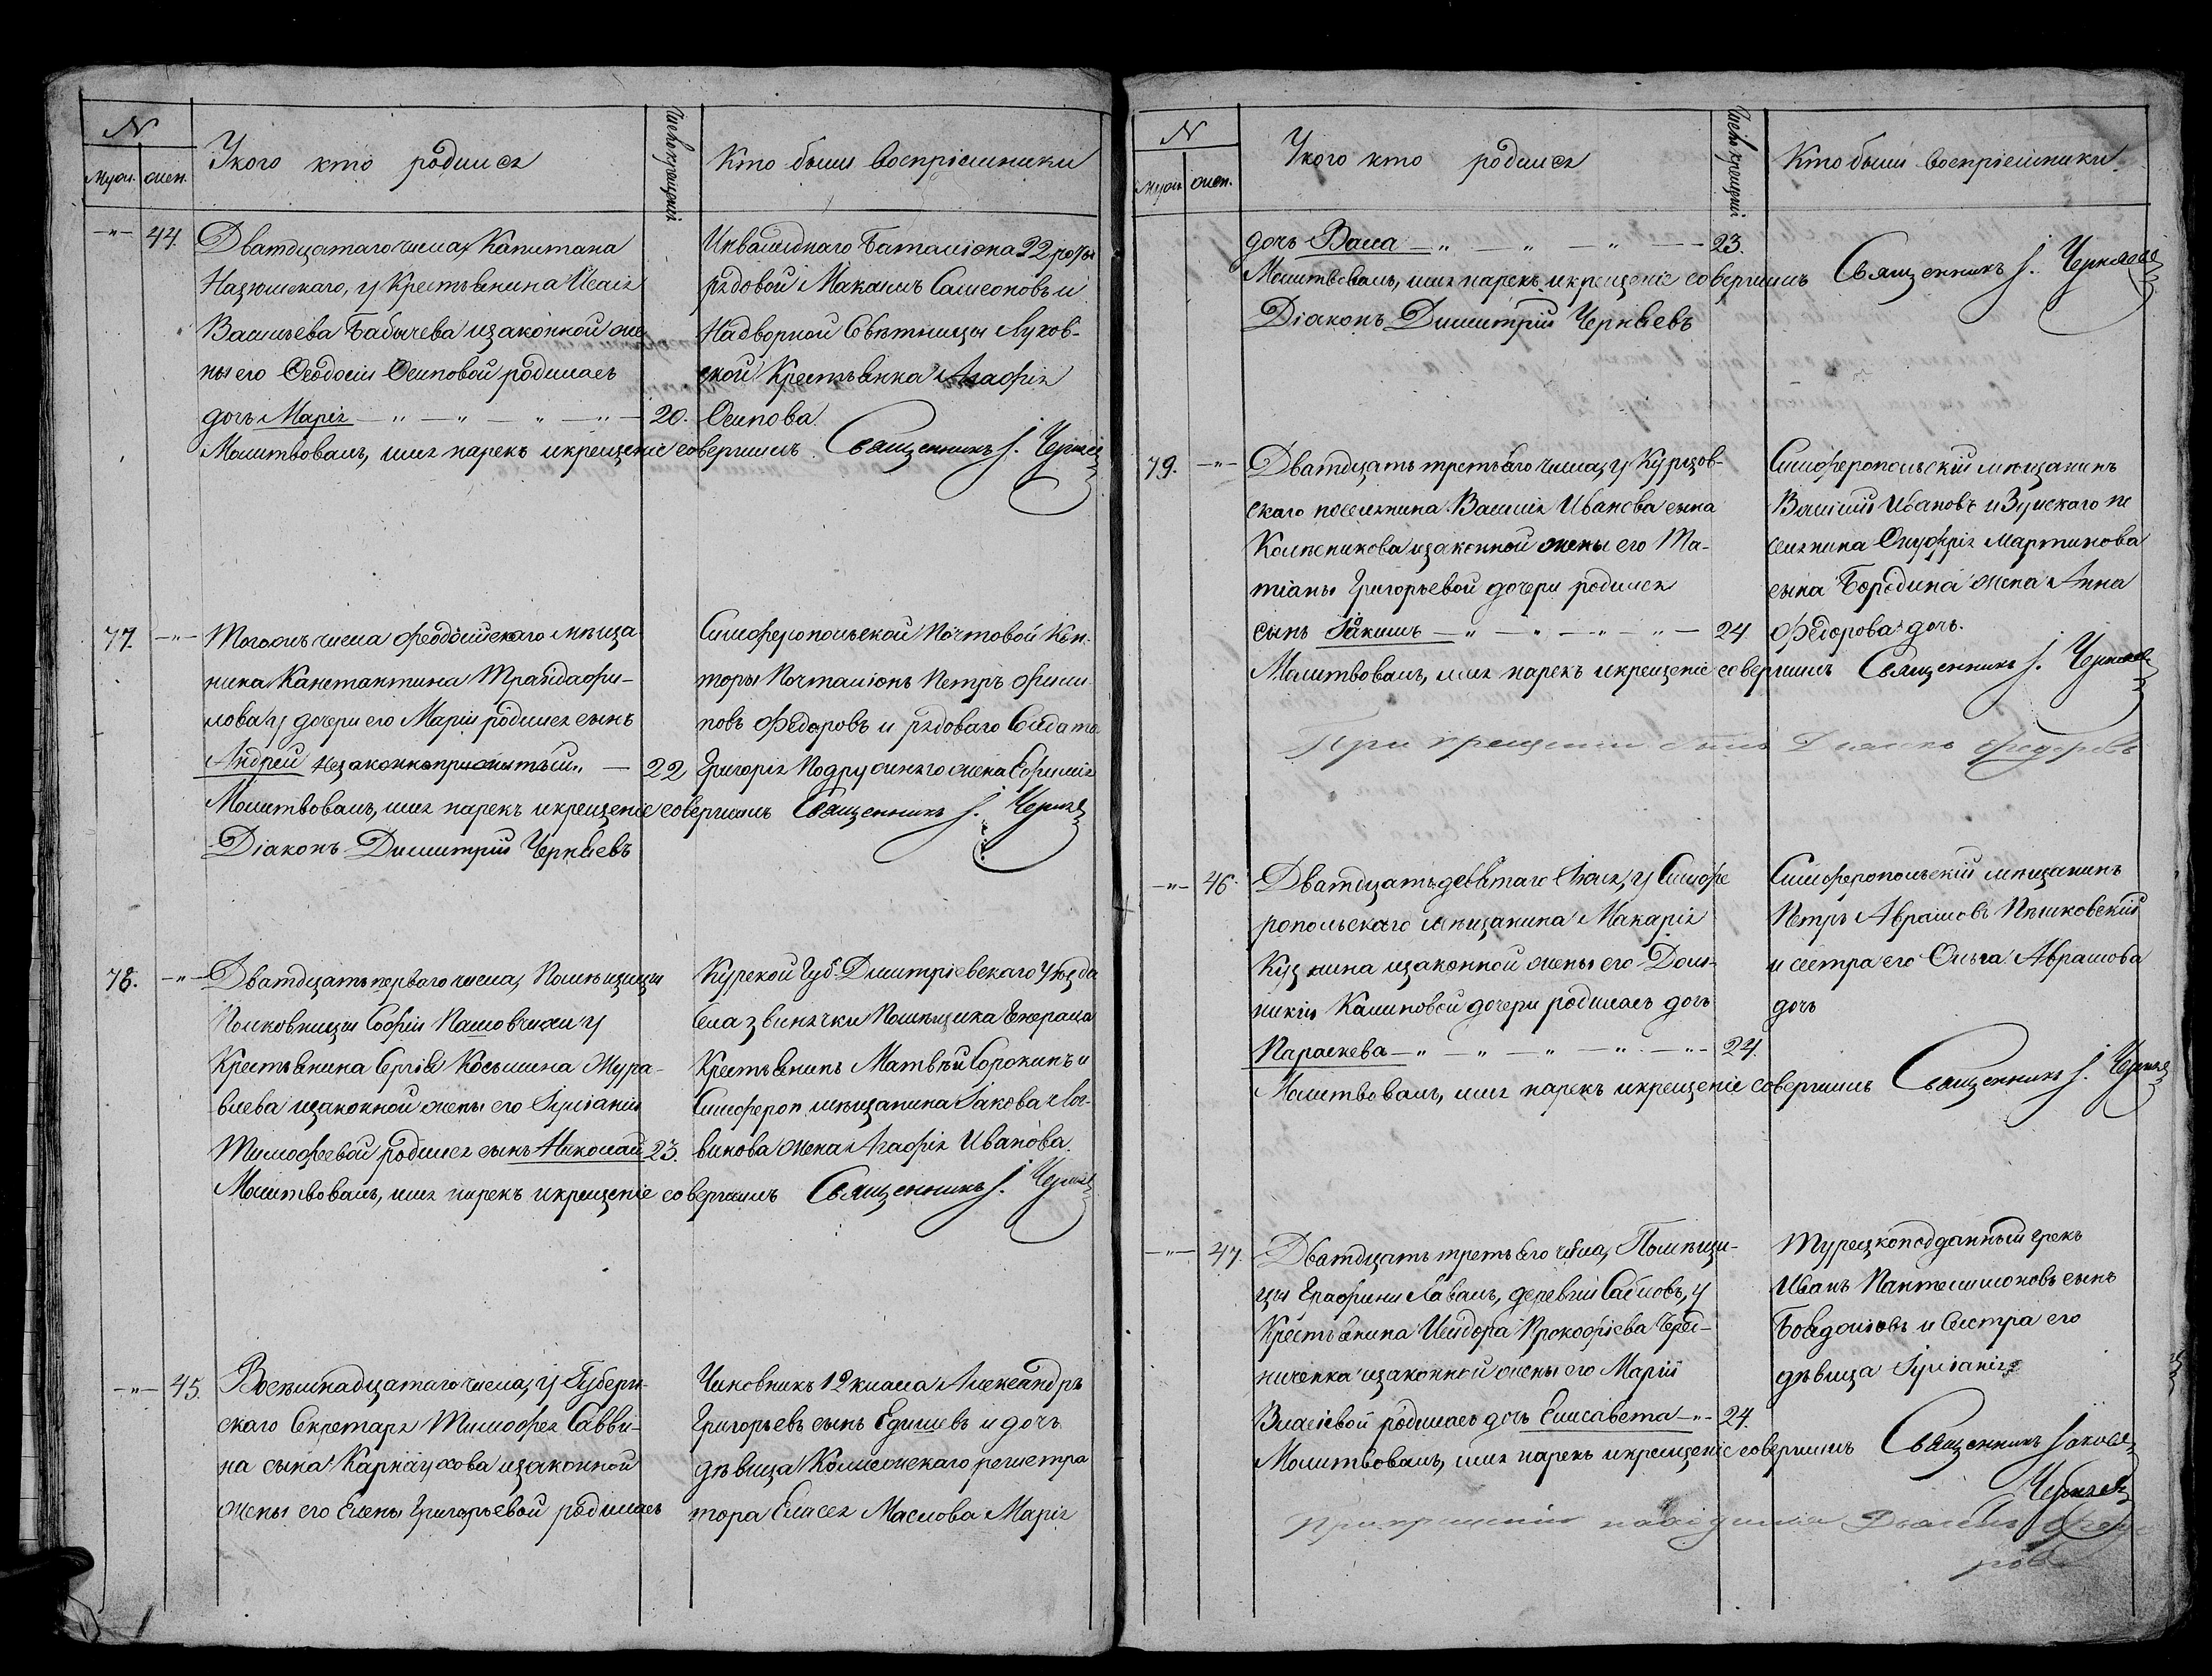 N
Муж. жен.
У кого кто родился
Число крещенія
Кто были воспріемники
-„- 44. Дватдцатаго числа, Капитана
Назюмскаго, у Крестьянина Исаія
Васильева Бабычева и законной же
ны его Феодосіи Осиповой родилась
дочь Марія — „ — „ — „ — „ — 20.
Инвалиднаго Баталіона 22 роты
рядовой Максимъ Самсоновъ и
Надворной Совѣтницы Луков-
ской Крестьянка Агафія
Осипова.
Молитвовалъ, имя нарекъ и крещеніе совершилъ Священникъ І. Черняев
77. -„- Тогожъ числа Феодосійскаго мѣща
нина Канстантина Трандафи-
лова, у дочери его Маріи родился сынъ
Андрей незаконноприжитый. — 22.
Симферопольской Почтовой Кон-
торы Почталіонъ Петръ Филип
повъ Федоровъ и рядоваго Солдата
Григорія Подружняго жена Ефимія
Молитвовалъ, имя нарекъ и крещеніе совершилъ Священникъ І. Черняев
Діаконъ Димитрій Чернѣевъ
78. -„- Дватдцать перваго числа, Помѣщицы
Полковницы Софіи Павловчихи у
Крестьянина Сергія Косьмина Мура-
влева и законной жены его Іуліаніи
Тимофеевой родился сынъ Николай 23.
Курской Губ. Дмитріевскаго Уѣзда
Села Звинячки Помѣщика Генерала
Крестьянинъ Матвѣй Сорокинъ и
Симфероп. мѣщанина Іакова Лог-
винова жена Агафія Иванова.
Молитвовалъ, имя нарекъ и крещеніе совершилъ Священникъ І. Черняев
-„- 45. Восѣмнадцатаго числа, у Губерн-
скаго Секретаря Тимофея Савви-
на сына Карнаухова и законной
жены его Елены Григорьевой родилась
Чиновникъ 12 класа Александръ
Григорьевъ сынъ Едишевъ и дочь
дѣвица Колежскаго регистра
тора Елисея Маслова Марія
N
Муж. жен.
У кого кто родился
Число крещенія
Кто были воспріемники
дочь Васса — „ — „ — „ — 23.
Молитвовалъ, имя нарекъ и крещеніе совершилъ Священникъ І. Черняев
Діаконъ Димитрій Чернѣевъ
79. -„- Дватдцать третьяго числа, у Курцов-
скаго поселянина Василія Иванова сына
Колѣсникова и законной жены его Та-
тіаны Григорьевой дочери родился
сынъ Іакимъ — „ — „ — „ — „ — 24
Симферопольскій мѣщанинъ
Василій Ивановъ и Зуйскаго по
селянина Онуфрія Мартинова
сына Бородина жена Анна
Федорова дочь.
Молитвовалъ, имя нарекъ и крещеніе совершилъ Священникъ І. Черняев
При крещеніи былъ Дьячекъ Федоровъ
-„- 46. Дватдцать девятаго Іюля, у Симфе
ропольскаго мѣщанина Макарія
Кузмина и законной жены его Дом-
никіи Калиновой дочери родилась дочь
Параскева — „ — „ — „ — „ — 24.
Симферопольскій мѣщанинъ
Петръ Аврамовъ Пѣшковскій
и сестра его Ольга Аврамова
дочь
Молитвовалъ, имя нарекъ и крещеніе совершилъ Священникъ І. Черняев
-„- 47. Дватдцать третьяго числа, Помѣщи-
цы Графини Лаваль, деревни Сабловъ, у
Крестьянина Исидора Прокофіева
ниченка и законной жены его Маріи
Власіевой родилась дочь Елисавета — „ - 24.
Турецкоподданный грекъ
Иванъ Пантелимоновъ сынъ
и Сестра его
дѣвица Іуліанія
Молитвовалъ, имя нарекъ и крещеніе совершилъ Священникъ Іаковъ
Черняев
При крещеніи находился Дьячекъ Федо
ровъ